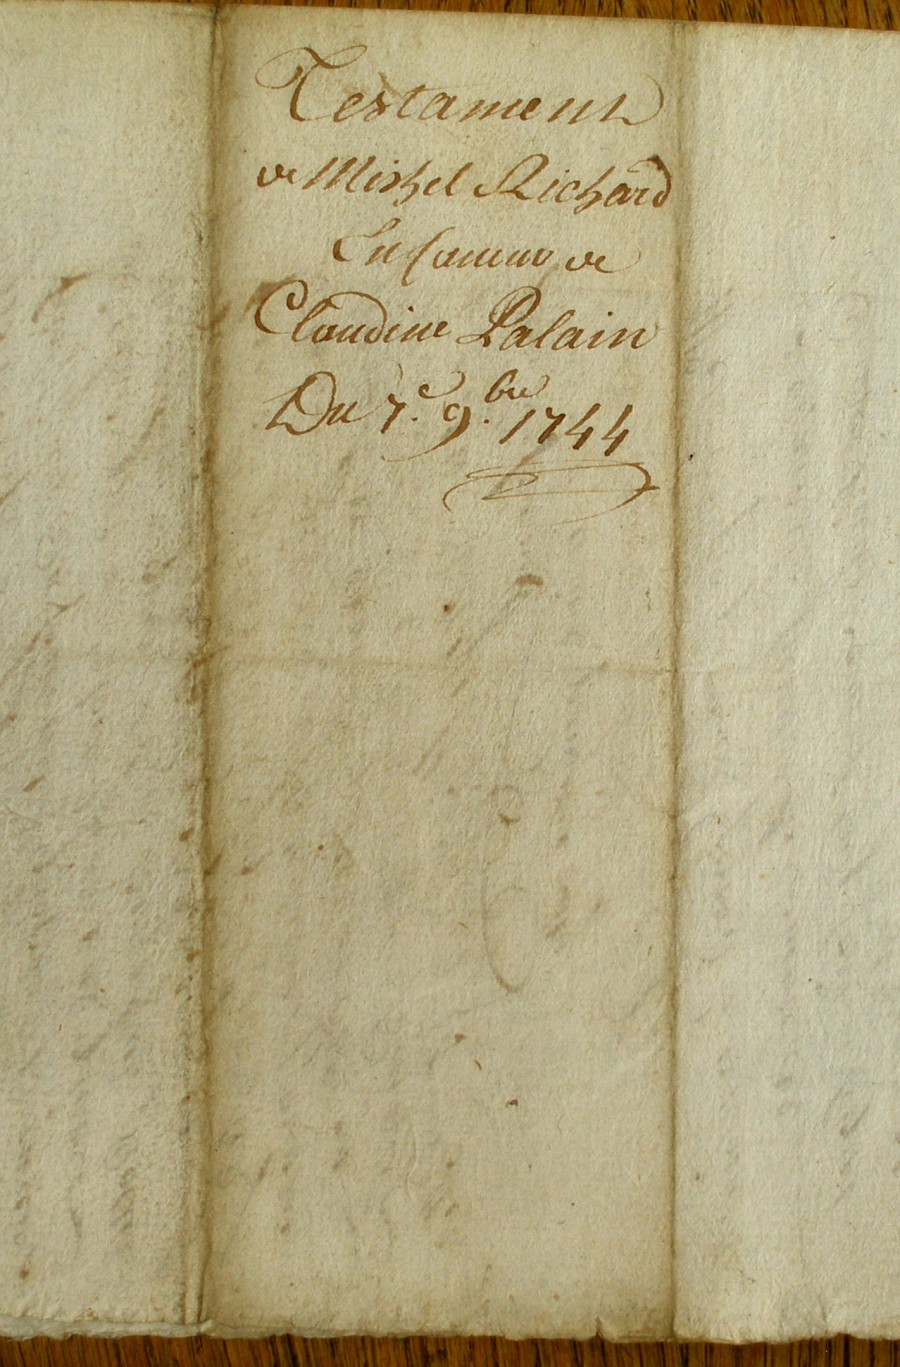 Testament
de Mishel Richard
En faveur de
Claudine Palain
Du 7.e 9.bre 1744